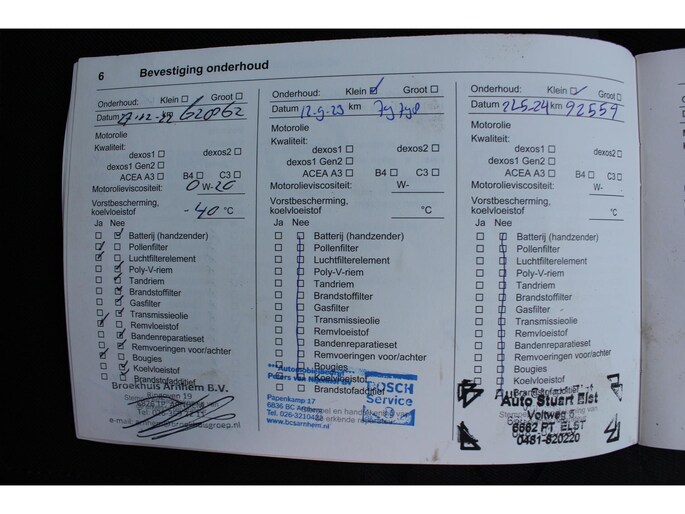 6 Bevestiging onderhoud
Onderhoud: Klein Groot
Datum
Motorolie
Kwaliteit:
dexos1 dexos2
dexos1 Gen2
ACEA A3 B4 C3
Motorolieviscositeit: 0 W-20
Vorstbescherming,
koelvloeistof -40 °C
Ja Nee
Batterij (handzender)
Pollenfilter
Luchtfilterelement
Poly-V-riem
Tandriem
Brandstoffilter
Gasfilter
Transmissieolie
Remvloeistof
Bandenreparatieset
Remvoeringen voor/achter
Bougies
Koelvloeistof
Brandstofadditief
Broekhuis Arnhem B.V.
Onderhoud: Klein Groot
Datum 12-9-23 km
Motorolie
Kwaliteit:
dexos1 dexos2
dexos1 Gen2
ACEA A3 B4 C3
Motorolieviscositeit: W-
Vorstbescherming,
koelvloeistof °C
Ja Nee
Batterij (handzender)
Pollenfilter
Luchtfilterelement
Poly-V-riem
Tandriem
Brandstoffilter
Gasfilter
Transmissieolie
Remvloeistof
Bandenreparatieset
Remvoeringen voor/achter
Bougies
Koelvloeistof
Brandstofadditief
BOSCH
Service
Papenkamp 17
6836 BC Arnhem
Tel. 026-3210422
www.bcsarnhem.nl
Onderhoud: Klein Groot
Datum 22-5-24 km 92559
Motorolie
Kwaliteit:
dexos1 dexos2
dexos1 Gen2
ACEA A3 B4 C3
Motorolieviscositeit: W-
Vorstbescherming,
koelvloeistof °C
Ja Nee
Batterij (handzender)
Pollenfilter
Luchtfilterelement
Poly-V-riem
Tandriem
Brandstoffilter
Gasfilter
Transmissieolie
Remvloeistof
Bandenreparatieset
Remvoeringen voor/achter
Bougies
Koelvloeistof
Auto Stuart Elst
Voltweg 6
6662 PT ELST
0481-820220